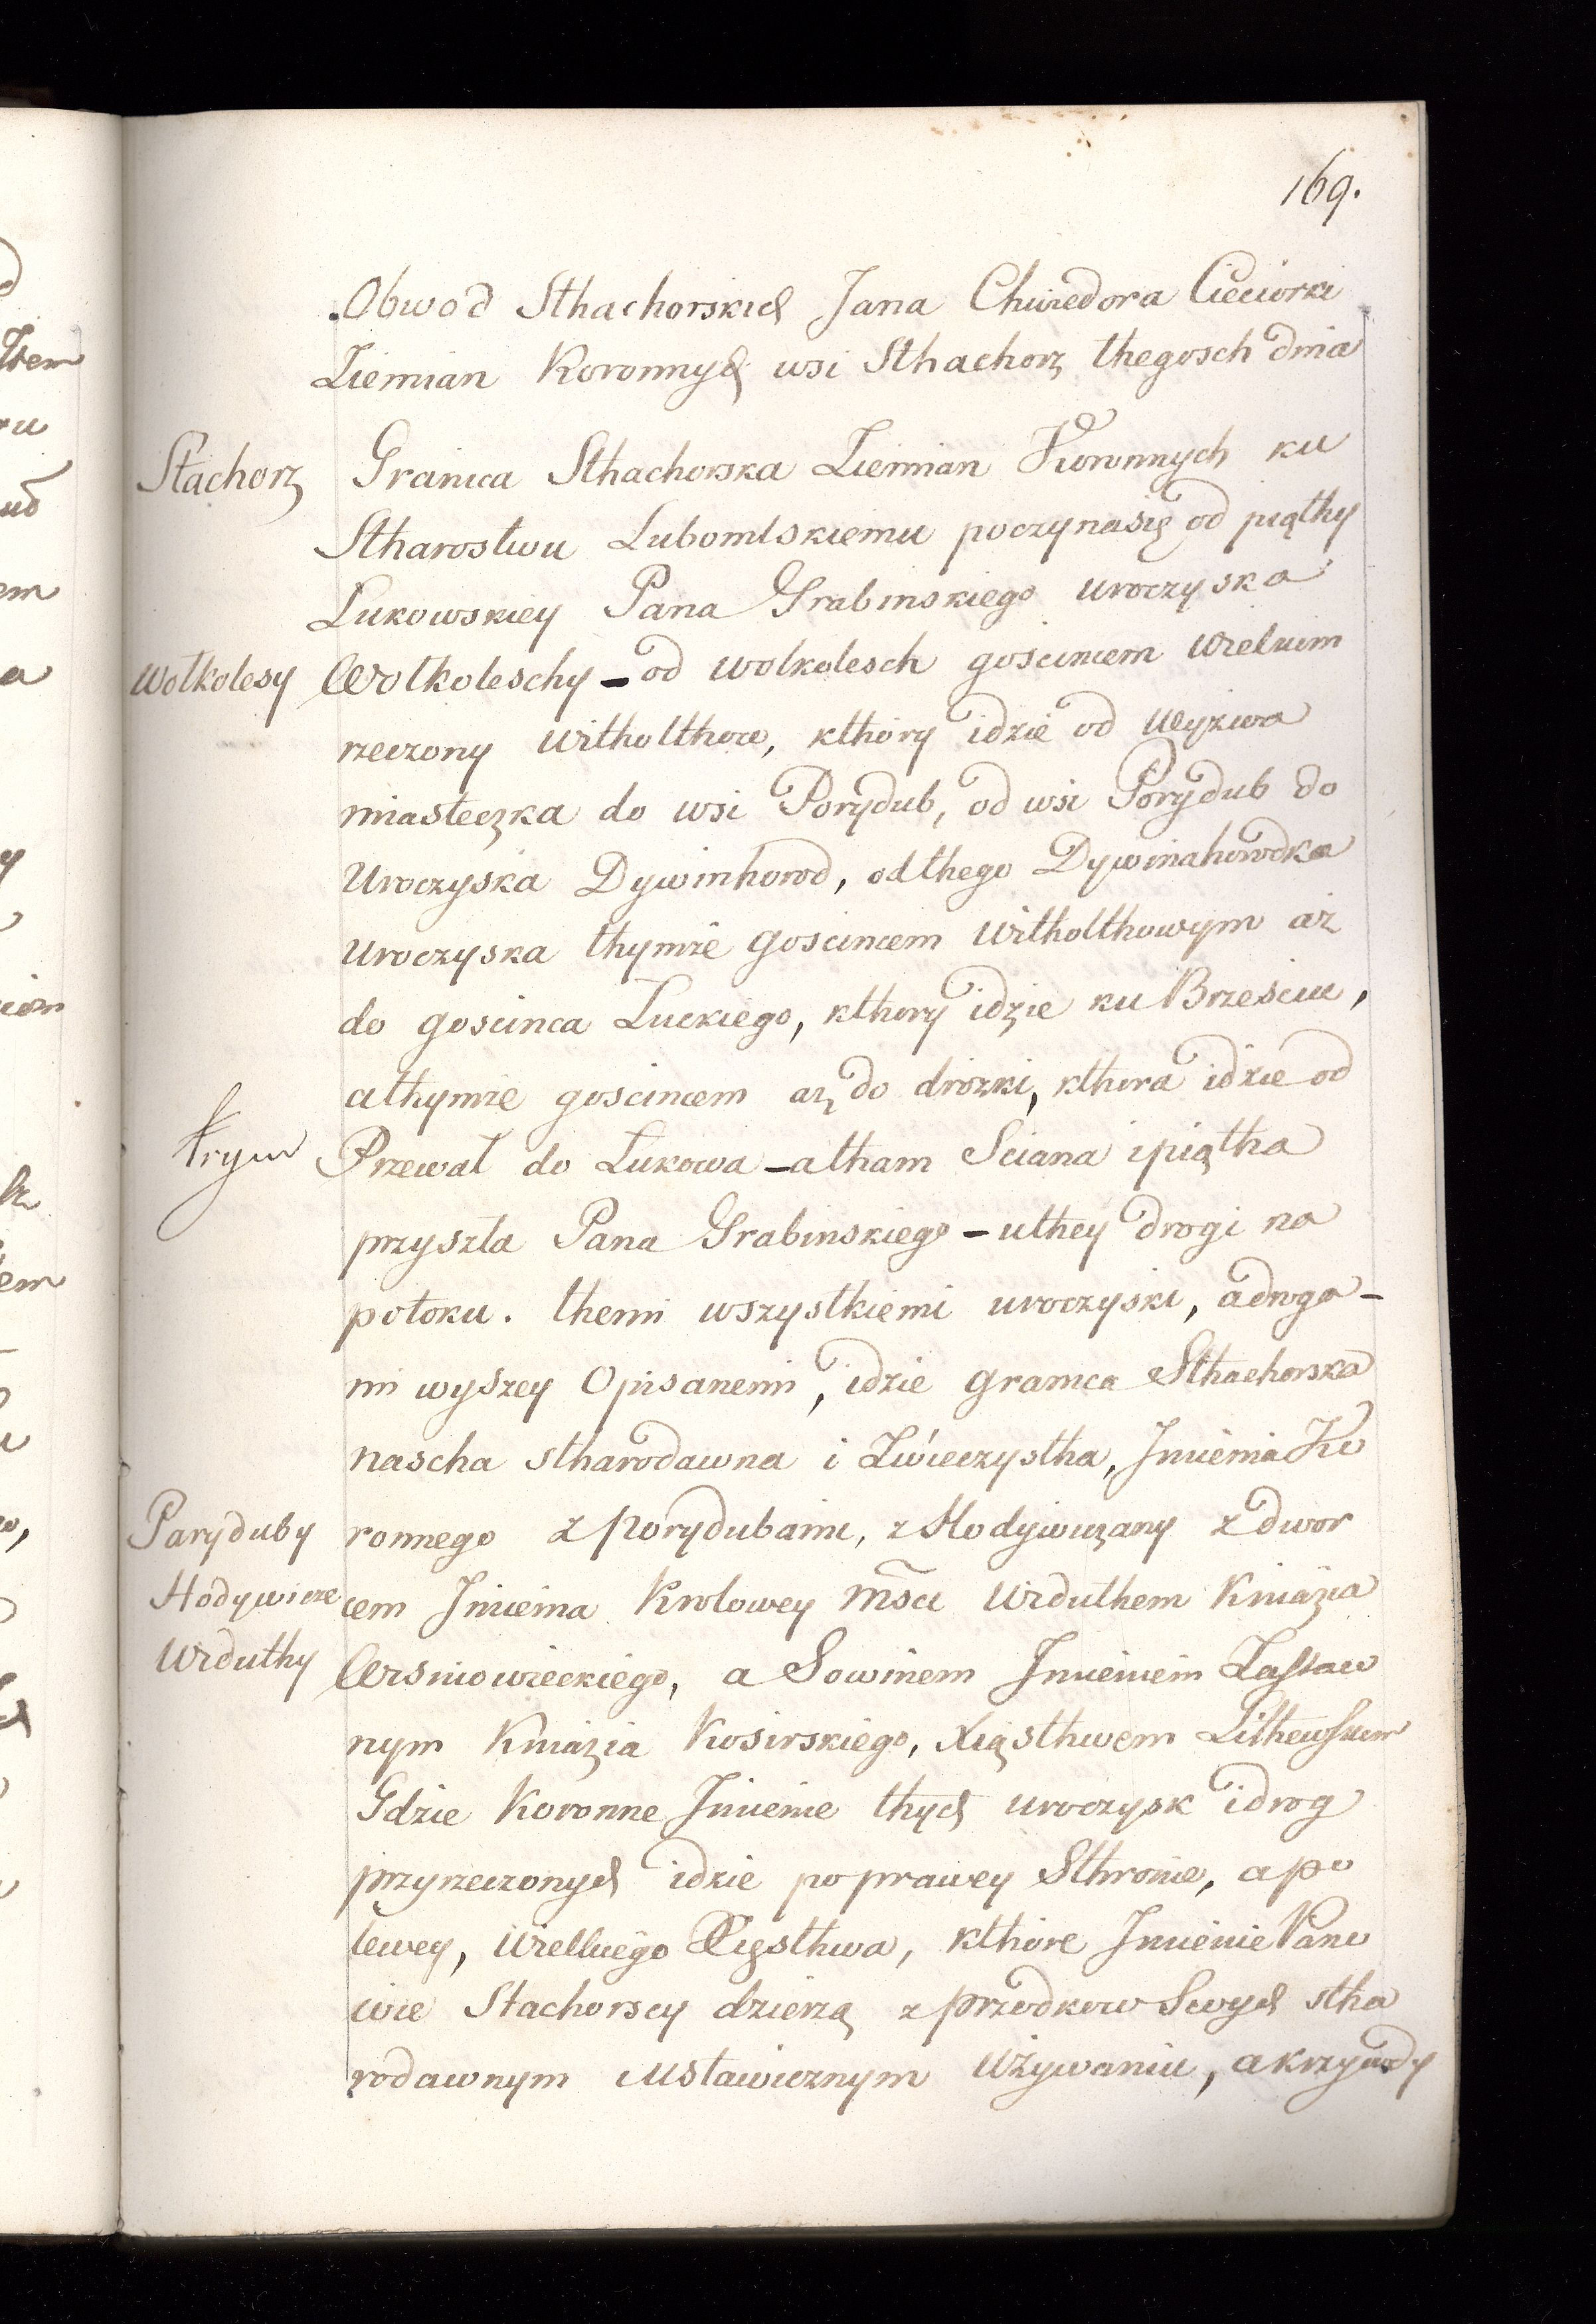 169.
Obwod Sthachorskich Jana Chwedora Cieciorki
Ziemian Koronnych wsi Sthachorz thegosch dnia
Stachorz
Granica Sthachorska Ziemian Koronnych ku
Stharostwu Lubomlskiemu poczynasię od piąthy
Lukowskiey Pana Grabinskiego uroczyska
Wołkolesy
Wołkoleschy – od wołkolesch goscincem wielkim
rzeczony witholthow, kthóry idzie od Wyzwa
miasteczka do wsi Porydub, od wsi Porydub do
Uroczyska Dywinhorod, odthego Dywinahorodka
uroczyska thymże goscincem witholthowym aż
do goscinca Luckiego, kthory idzie ku Brzesciu,
athymże goscincem aż do drożki, kthora idzie od
Krym
Przewał do Lukowa – atham Sciana i piątha
przyszła Pana Grabinskiego – uthey drogi na
potoku. themi wszystkiemi uroczyski, adroga –
mi wyszey Opisanemi, idzie granica Sthachorska
nascha stharodawna i Zwieczystha, Jmienia Ko
Paryduby
ronnego z porydubami, z Hodywiczany z dwor
Hodywicze
cem Jmienia Krolowey Mści Widuthem Kniazia
Widuthy
Wisniowieckiego, a Sowinem Jmieniem Zastaw
nym Kniazia Kosirskiego, Xięsthwem Lithewskim
Gdzie Koronne Jmienie thych uroczysk idrog
przyrzeczonych idzie po prawey Sthronie, a po
lewey, Wielkiego Xięsthwa, kthore Jmienie Pano
wie Stachorscy dzierzą z przodkow Swych stha
rodawnym i ustawicznym używaniu, akrzywdy